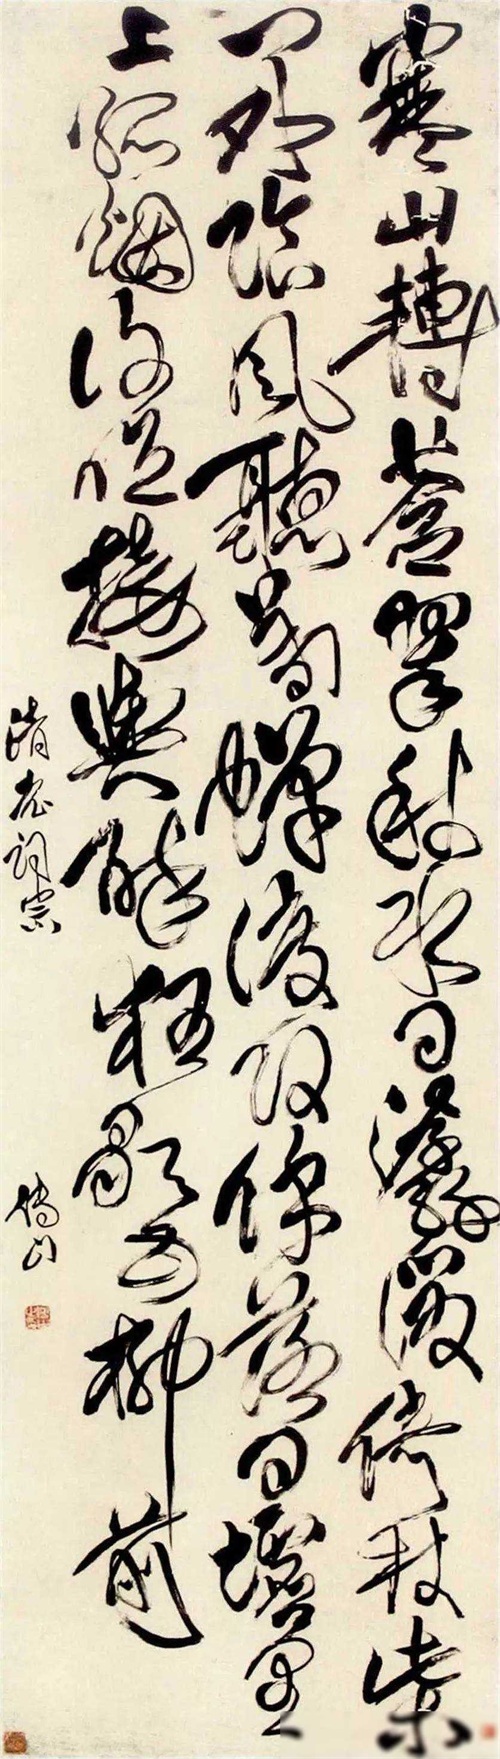 寒山轉蒼翠秋水日潺湲倚杖柴
門外臨風聽暮蟬渡頭餘落日墟里
上孤煙復值接輿醉狂歌五柳前
清老詞宗
傅山